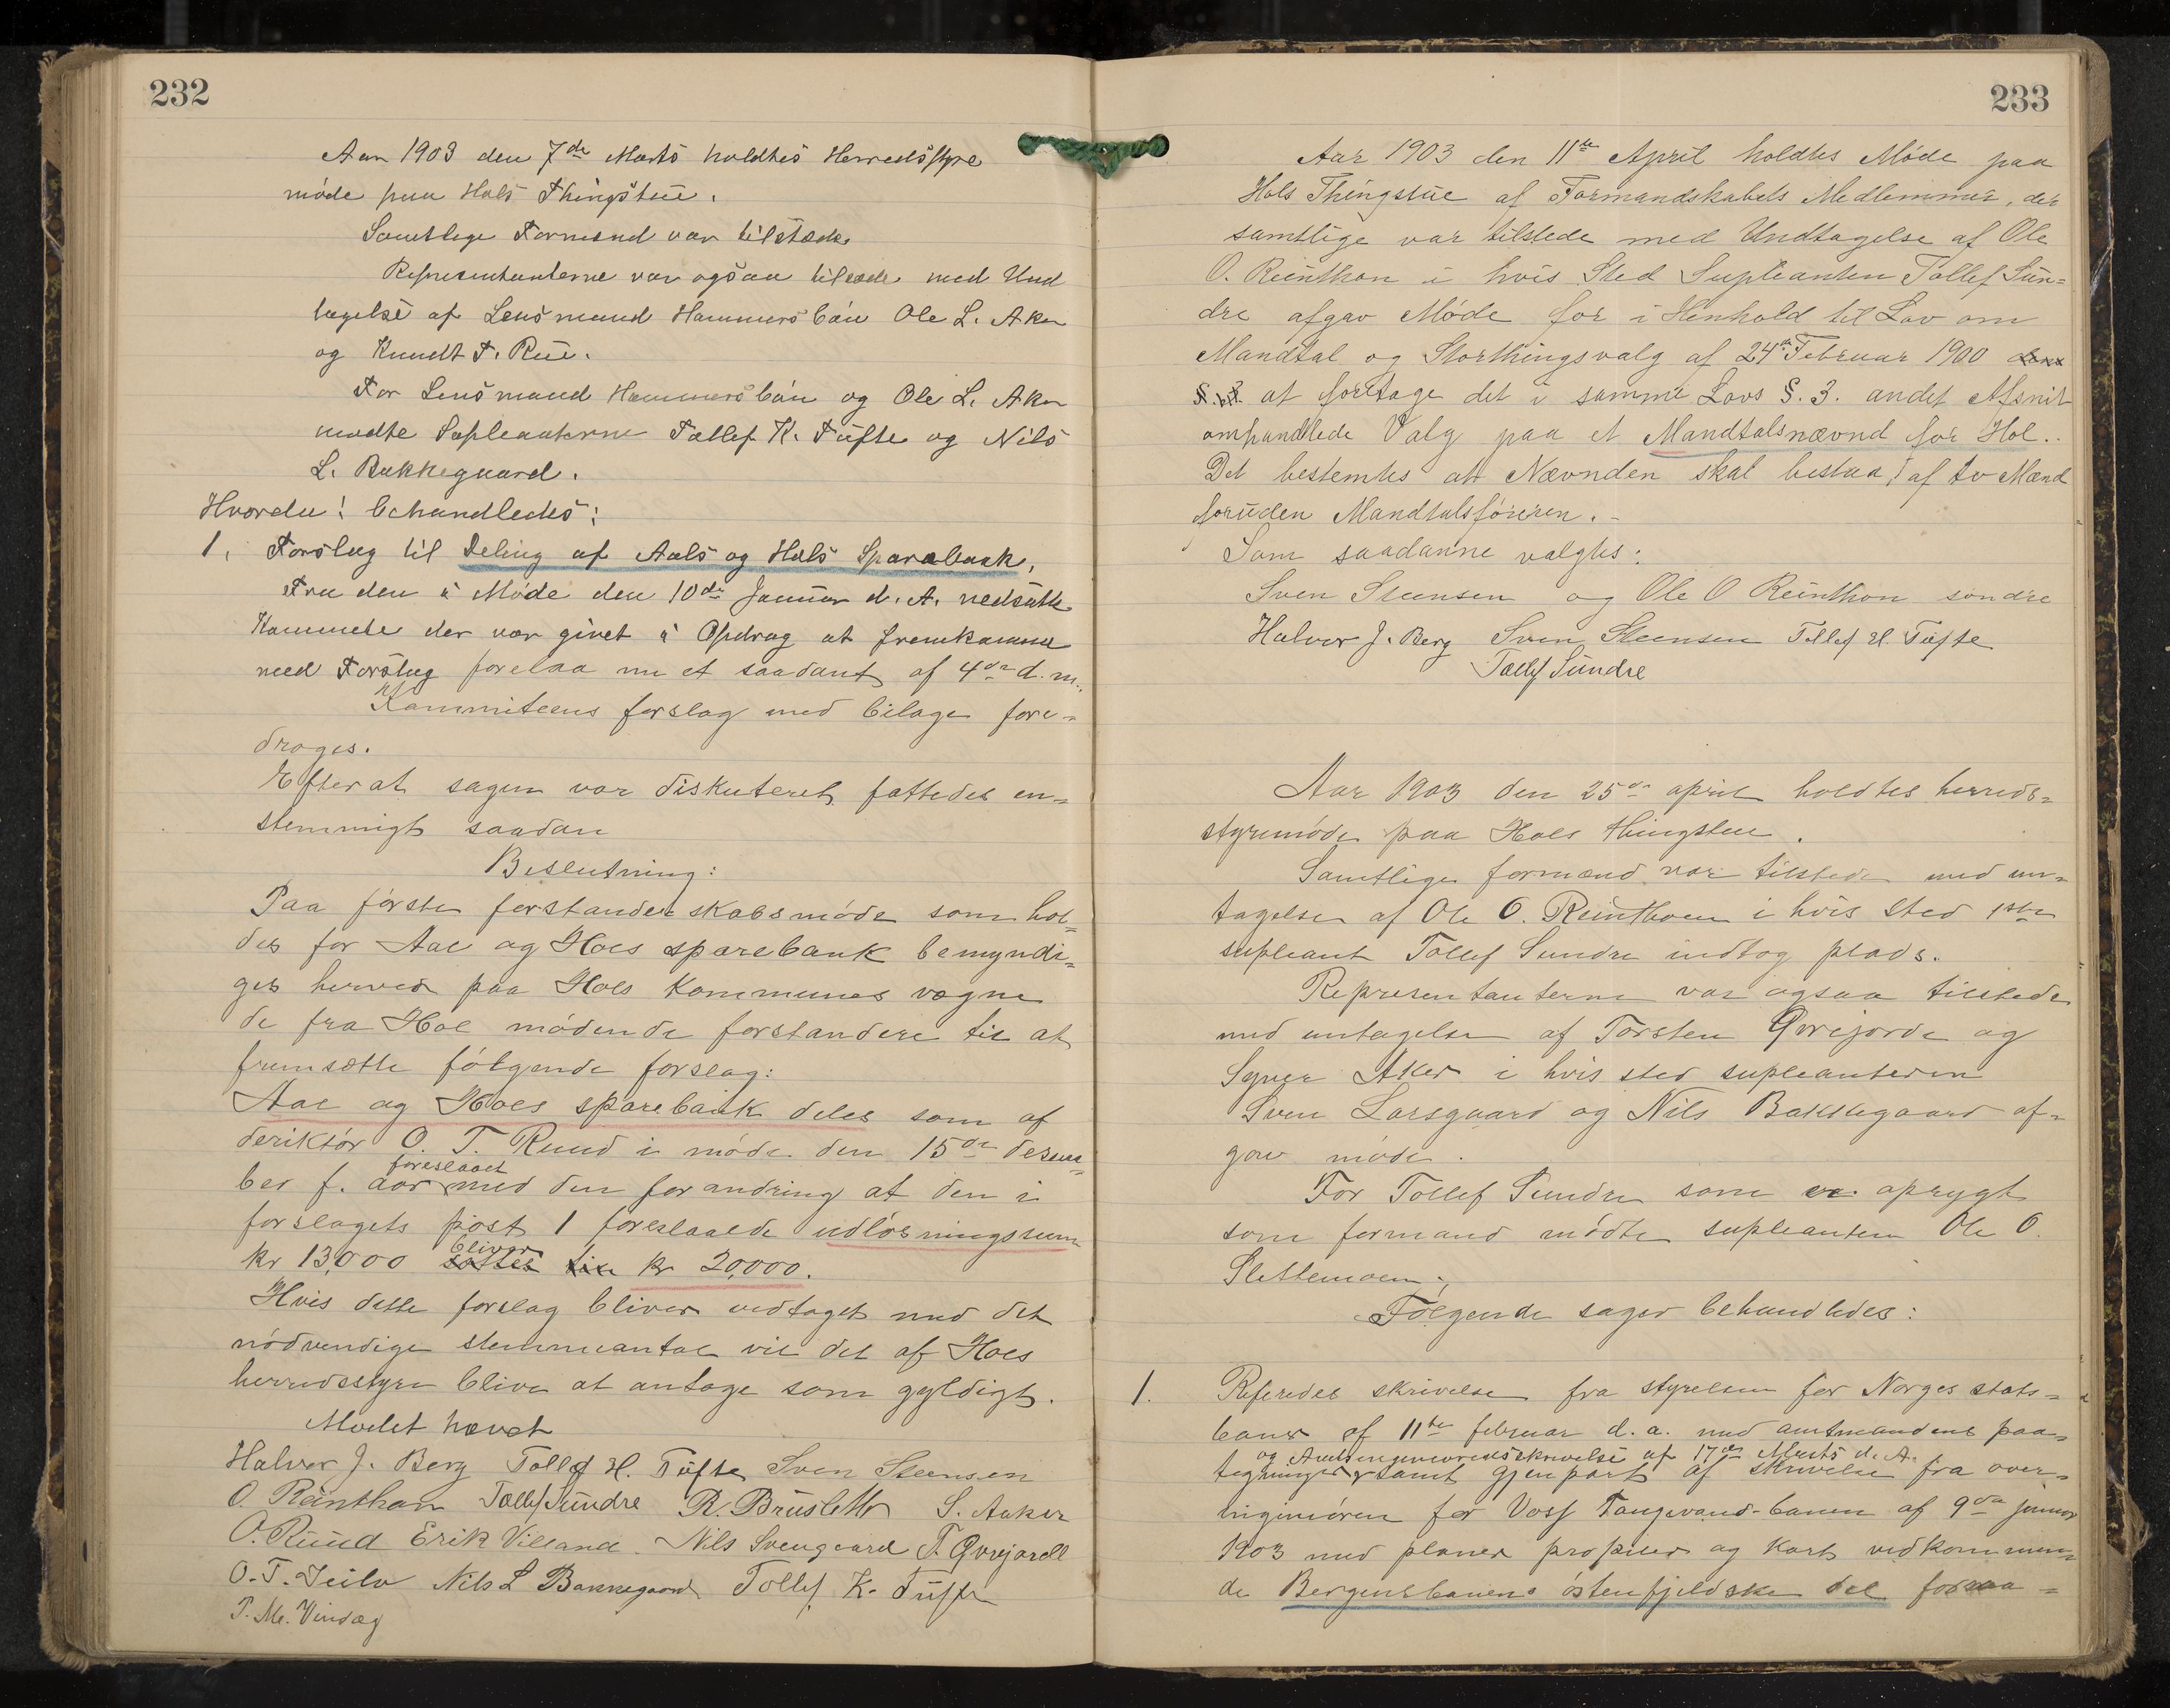 232
Aar 1903 den 7de Marts holdtes Herredsstyre
møde paa Hols Thingstue.
Samtlige Formænd var tilstæde.
Repræsentanterne var ogsaa tilstæde med Und
tagelse af Lensmand Hammersbøen Ole L. Aker
og Knudt T. Rue.
For Lensmand Hammersbøen og Ole L. Aker
mødte Supleanterne Tollef K. Tufte og Nils
L. Bakkegaard.
Hvorda! behandledes:
1. Forslag til Deling af Aals og Hols Sparebank.
Fra den i Møde den 10de Januar d. A. nedsatte
Kommite der var givet i Opdrag at fremkomme
med Forslag forelaa nu et saadant af 4de d.m.
Kommiteens forslag med bilage fore-
droges.
Efter at sagen var diskuteret fattedes en-
stemmigt saadan
Beslutning:
Paa første forstanderskabsmøde som hol-
des for Aal og Hols sparebank bemyndi-
ges herved paa Hols kommunes vegne
de fra Hol mødende forstandere til at
fremsætte følgende forslag:
Aal og Hols sparebank deles som af
deriktør O. T. Ruud i møde den 15de desem-
foreslaaet
ber f. aar med den forandring at den i
forslagets post 1 foreslaaede udløsningssum
bliver
kr 13,000 sættes til kr 20,000.
Hvis dette forslag bliver vedtaget med det
nødvendige stemmeantal vil det af Hols
herredsstyre blive at antage som gyldigt.
Mødet hævet
Halvor J. Berg Tollef H. Tufte Sven Steensen
O. Reinthon Tollef Sundre R. Brusletto S. Aaker
O. Ruud Erik Villand. Nils Svengaard T. Gvrejordl
O. T. Nils L Bakkegaard Tollef K. Tufte
T. M. Vindeg
233
Aar 1903 den 11te April holdtes Møde paa
Hols Thingstue af Formandskabets Medlemmer, der
samtlige var tilstede med Undtagelse af Ole
O. Reinthon i hvis Sted Supleanten Tollef Sun-
dre afgav Møde for i Henhold til Lov om
Mandtal og Storthingsvalg af 24de Februar 1900
at foretage det i samme Lovs §. 3. andet Afsnit
omhandlede Valg paa et Mandtalsnævnd for Hol.
Det bestemtes at Nævnden skal bestaa af to Mænd
foruden Mandtalsføreren.
Som saadanne valgtes:
Sven Steensen og Ole O Reinthon søndre
Halvor J. Berg Sven Steensen Tollef H. Tufte
Tollef Sundre
Aar 1903 den 25de april holdtes herreds-
styremøde paa Hols thingstue.
Samtlige formænd var tilstede med un-
tagelse af Ole O. Reinthon i hvis sted 1ste
supleant Tollef Sundre indtog plads.
Representanterne var ogsaa tilstede
med untagelse af Torsten Gvrejorde og
Syver Aker i hvis sted supleanterne
Sven Larsgaard og Nils Bakkegaard af-
gav møde.
For Tollef Sundre som er oprygt
som formand mødte supleanten Ole O.
Slettemoen.
Følgende sager behandledes:
1. Referedes skrivelse fra styrelsen for Norges stats-
baner af 11te februar d.a. med amtmandens paa-
og Amtsingeniørens skrivelse af 17de Marts d. A.
tegninger samt gjenpart af skrivelse fra over-
ingeniøren for Voss Taugevand-banen af 9de januar
1903 med planer profiler og kart vedkommen-
de Bergensbanens østenfjeldske del